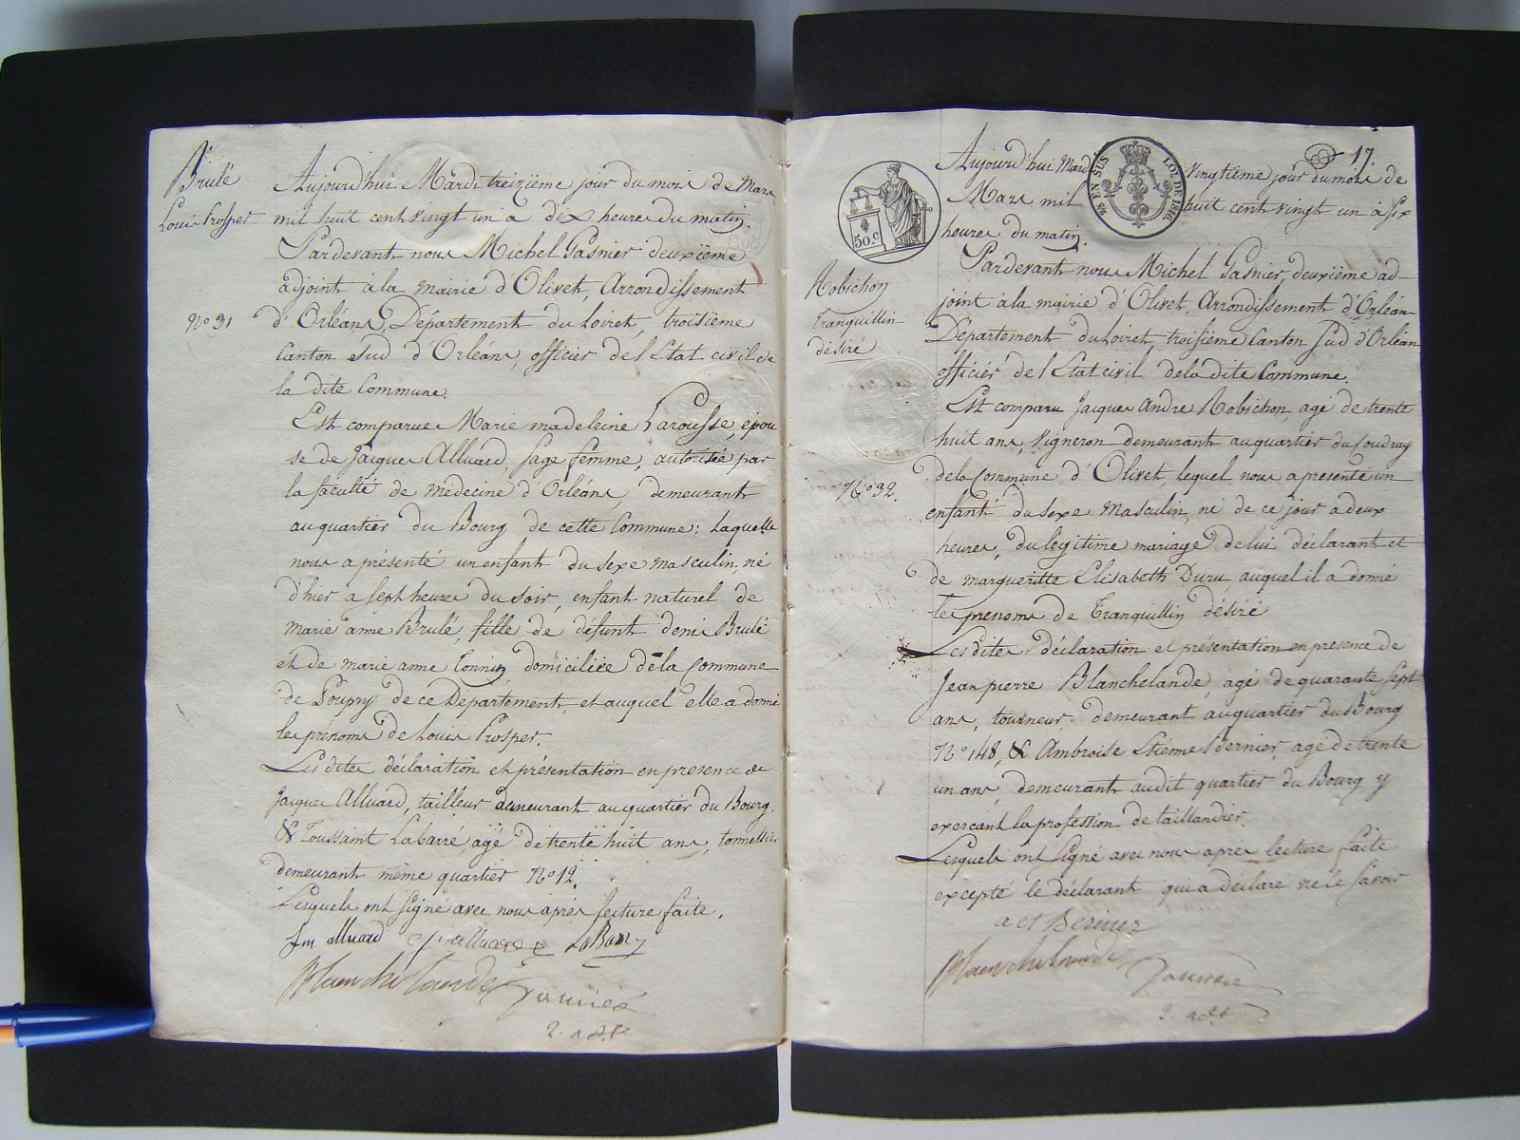 Brulé
Louis Prosper
N° 31
Aujourd'hui Mardi treizième jour du mois de Mars
mil huit cent vingt un à dix heures du matin.
Pardevant nous Michel Gasnier deuxième
adjoint à la mairie d'Olivet, Arrondissement
d'Orléans, Département du Loiret, troisième
Canton Sud d'Orléans, officier de l'Etat civil de
la dite Commune.
Est comparue Marie madeleine Larousse, épou
se de Jacques Alluard, sage femme, autorisée par
la faculté de médecine d'Orléans, demeurant
au quartier du Bourg de cette Commune: Laquelle
nous a présenté un enfant du sexe masculin, né
d'hier a sept heures du soir, enfant naturel de
Marie anne Brulé, fille de défunt denis Brulé
et de marie anne domiciliée de la Commune
de de ce Département, et auquel elle a donné
les prénoms de Louis Prosper.
Les dites déclaration et présentation en presence de
Jacques Alluard, tailleur demeurant au quartier du Bourg.
& Toussaint Labarre, agé de trente huit ans, tonnelier
demeurant même quartier N° 12.
Lesquels ont signé avec nous après lecture faite.
fm alluard LaBarre
Blanchelande Gasnier
2. adjt
17.
50 c
EN SUS
LOI DE 1816
Robichon
Tranquillin
désiré
N° 32.
Aujourd'hui Mardi vingtième jour du mois de
Mars mil huit cent vingt un à six
heures du matin.
Pardevant nous Michel Gasnier, deuxième ad-
joint à la mairie d'Olivet, Arrondissement d'Orléans
Département du Loiret, troisième Canton Sud d'Orléans
officier de l'Etat civil de la dite Commune.
Est comparu Jacques André Robichon, agé de trente
huit ans, vigneron demeurant au quartier du Coudray
de la Commune d'Olivet, lequel nous a présenté un
enfant du sexe masculin, né de ce jour à deux
heures, du légitime mariage de lui déclarant et
de margueritte Elisabeth Duru auquel il a donné
les prenoms de Tranquillin désiré
Les dites déclaration et présentation en presence de
Jean pierre Blanchelande, agé de quarante sept
ans, tourneur demeurant au quartier du Bourg
N° 148, & Ambroise Etienne Bernier, agé de trente
un ans, demeurant audit quartier du Bourg y
exercant la profession de taillandier.
Lesquels ont signé avec nous apres lecture faite
excepté le déclarant qui a déclaré ne le savoir
a et Bernier
Blanchelande Gasnier
2. adjt